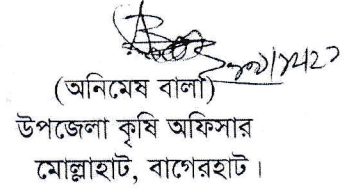 (অনিমেষ বালা)
উপজেলা কৃষি অফিসার
মোল্লাহাট, বাগেরহাট।